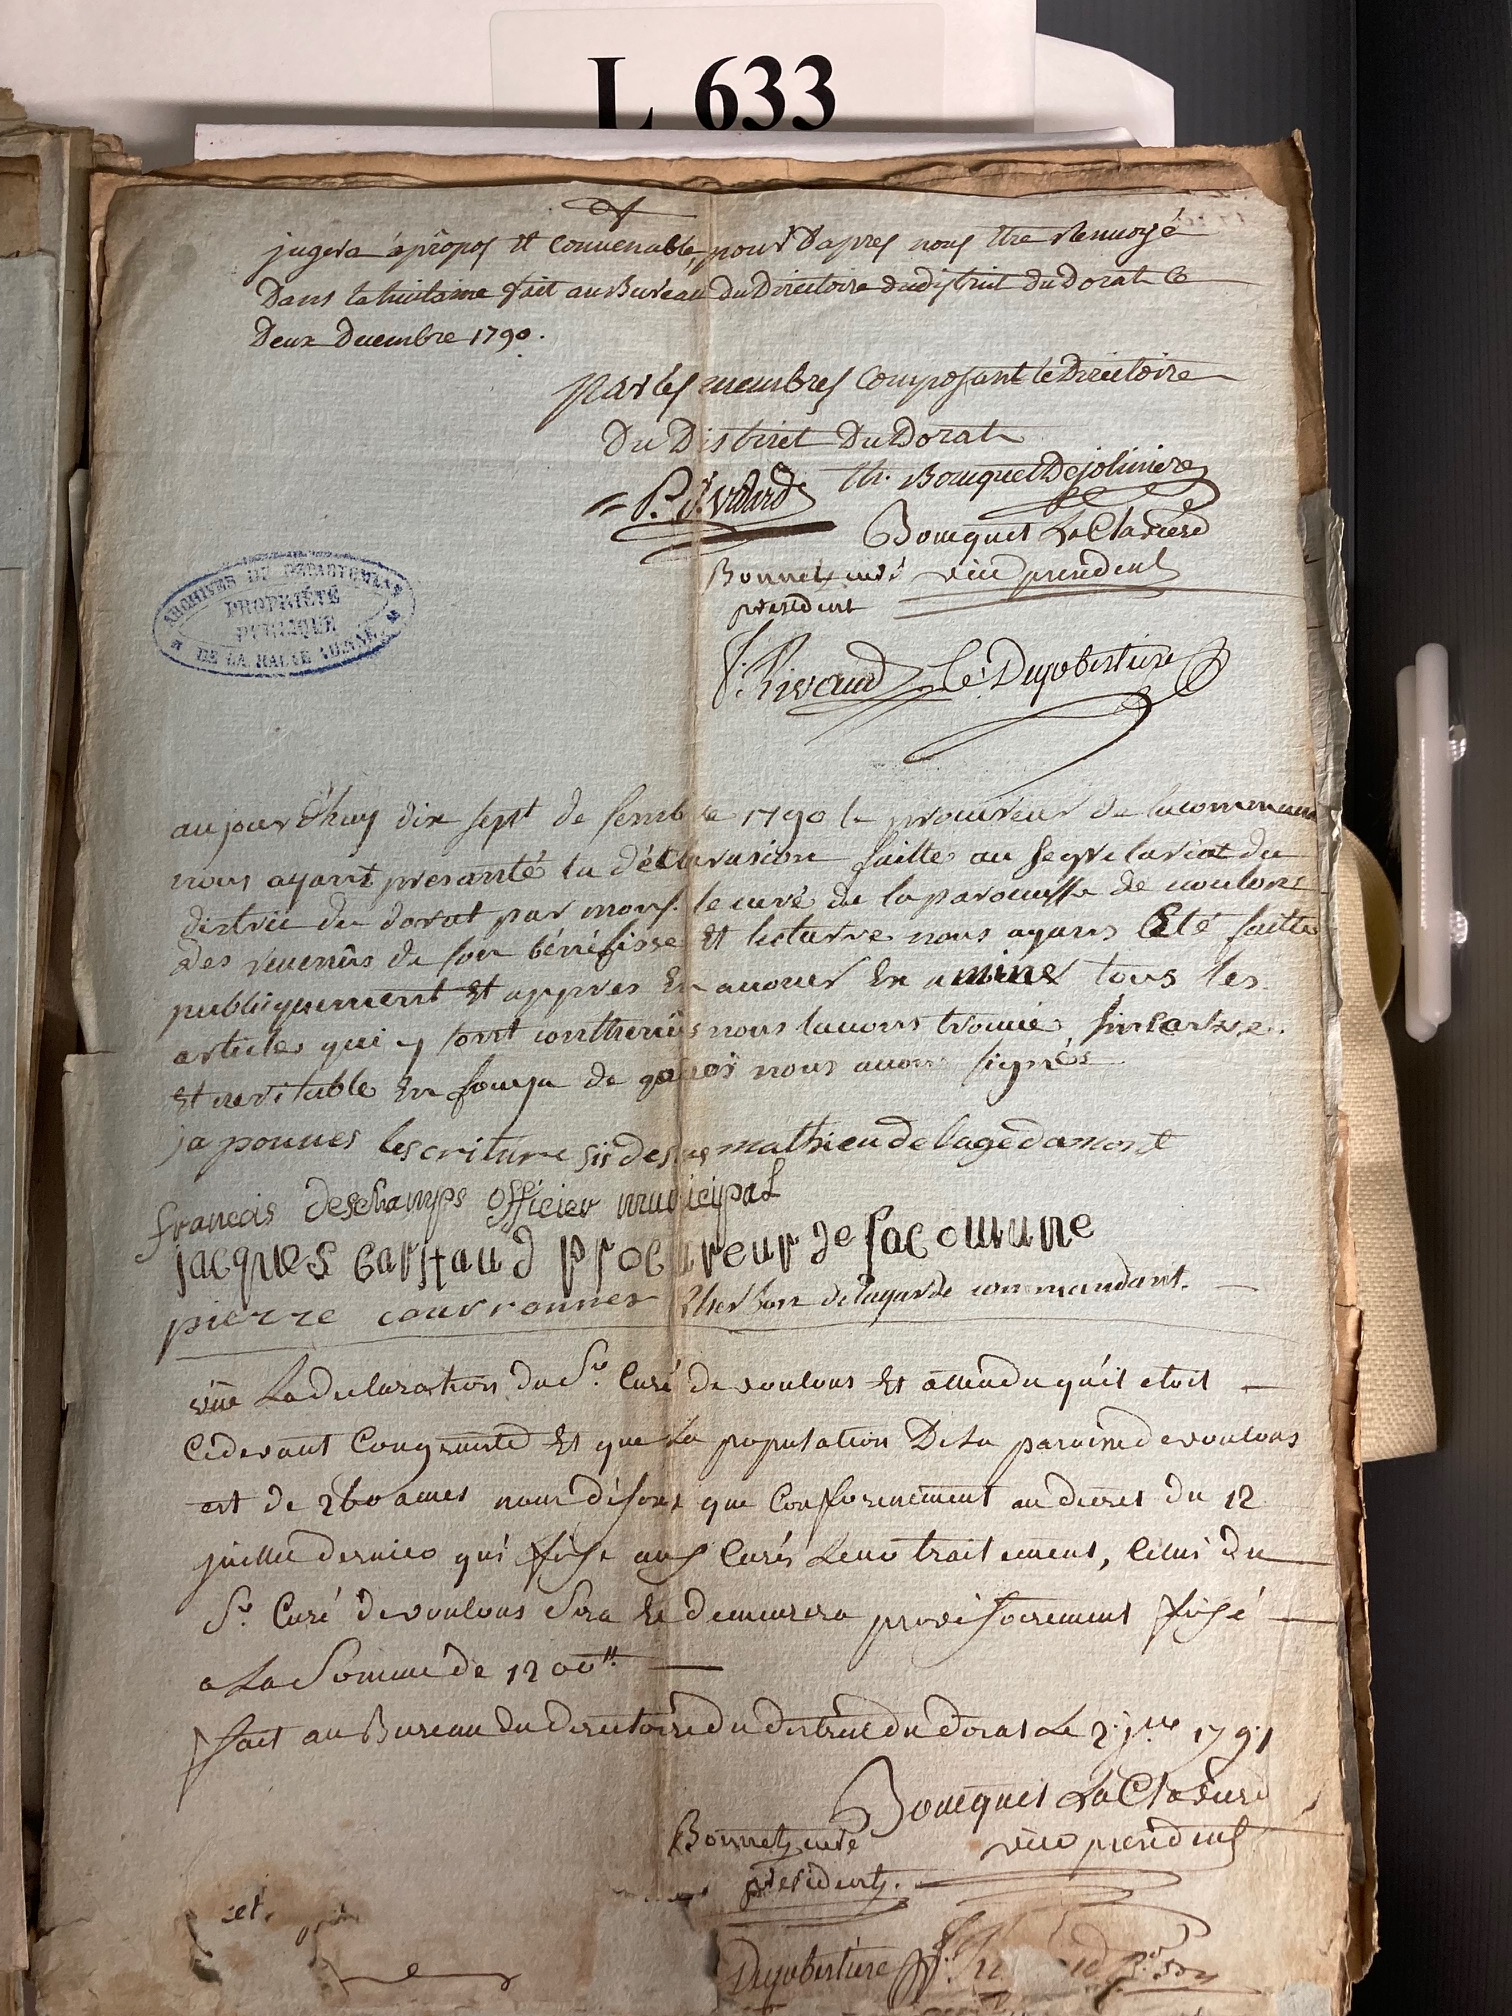 L 633
jugera apropos et convenable, pour Dapres nous Etre Renvoyé
Dans la huitaine fait au Bureau du Directoire du district du Dorat le
Deux Decembre 1790.
par les membres Composant le Directoire
Du District Du Dorat
th. Bouquet Dejoliniere
Bouquet LaClaviere
Bonnet curé vice president
president
f. Rivaud Dupobertiere
ARCHIVES DU DEPARTEMENT
PROPRIÉTÉ
PUBLIQUE
DE LA HAUTE VIENNE
aujourd'huy dix sept de sembre 1790 le procureur de la commune
nous ayant presanté la déclarasion faitte au segretariat du
distric du dorat par mons. le curé de la parouesse de voulons
des revenûs de son bénéfisse et lecturre nous ayans Eté faitte
publiquement Et appres En avouer Examiner tous les
articles qui y sont contenûs nous lavons trouvé sinserre
Et veritable En fouya de quoi nous avons signés
japrouves lescriture sisdesus mathieu delagedamont
francois deschamps officier municipal
jacques cartaud procureur de lacomune
pierre couvronner delagarde commandant.
vûe La declaration du Sr. Curé de voulons Et attendu quil etoit
Cidevant Congruiste Et que La population De La paroisse de voulons
est de 260 ames nous disons que Conformement au decret du 12
juillet dernier qui fixe aux Curés Leur traitement, Celui du
Sr. Curé de voulons Sera Et demeurera provisoirement fixé
a La Somme de 1200 ll.
fait au Bureau du directoire du district du dorat Le 2. jer 1791
Bouquet LaClaviere
Bonnet curé vice president
president.
Dupobertiere